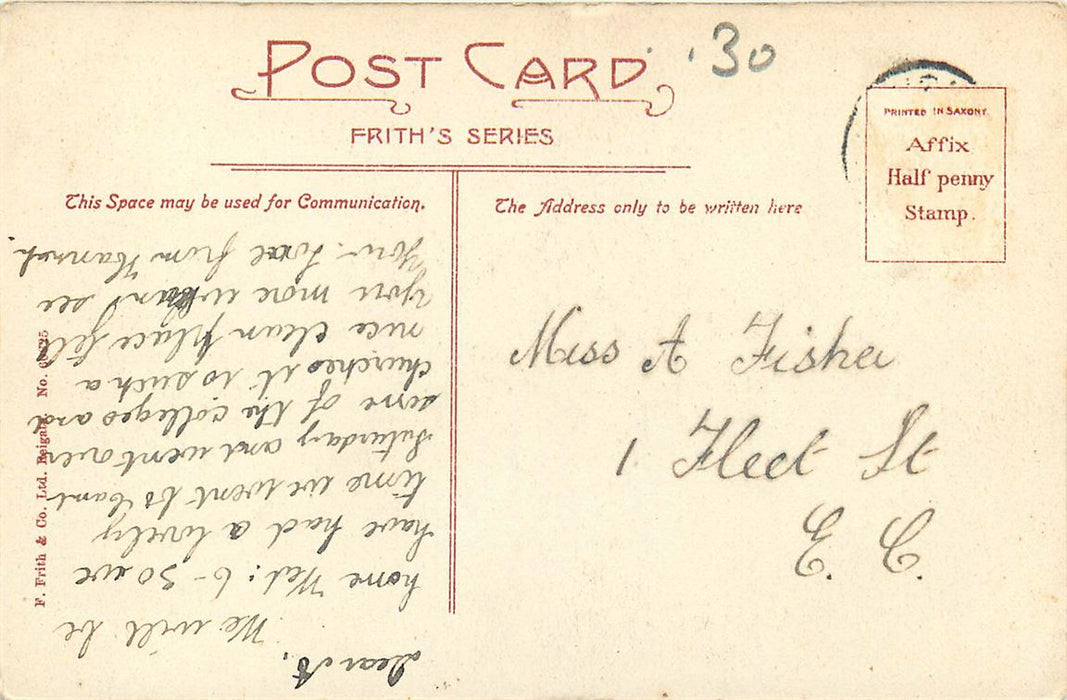 POST CARD
'30
FRITH'S SERIES
PRINTED IN SAXONY
Affix
Half penny
Stamp.
This Space may be used for Communication.
The Address only to be written here
Dear A.
We will be
home Wed: 6-30 we
have had a lovely
time we went to Cam
Saturday and went over
some of the colleges and
churches it is such a
nice clean place tell
you more when I see
you. Love from Hannah.
Miss A Fisher
1 Fleet St
E. C.
F. Frith & Co. Ltd. Reigate. No.